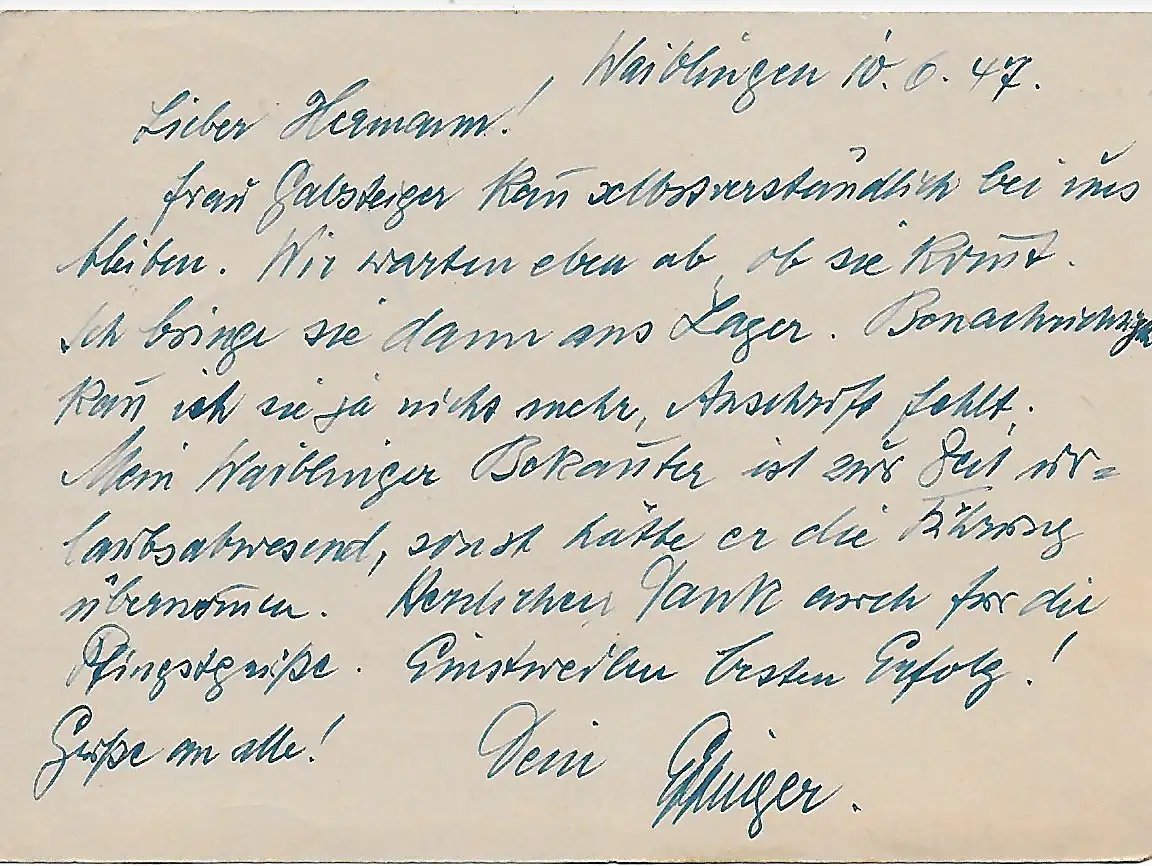 Waiblingen 10. 6. 47.
Lieber Hermann!
Frau Gabsteiger kan̄ selbstverständlich bei uns
bleiben. Wir warten eben ab, ob sie kom̄t.
Ich bringe sie dann ans Lager. Benachrichtigen
kan̄ ich sie ja nicht mehr, Anschrift fehlt.
Mein Waiblinger Bekan̄ter ist zur Zeit ur=
laubsabwesend, sonst hätte er die Führung
übernom̄en. Herzlichen Dank auch für die
Pfingstgrüße. Einstweilen besten Erfolg!
Grüße an alle! Dein